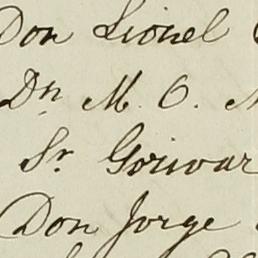 Don Lionel
Dn M. O.
Sr. Goriwar
Don Jorge